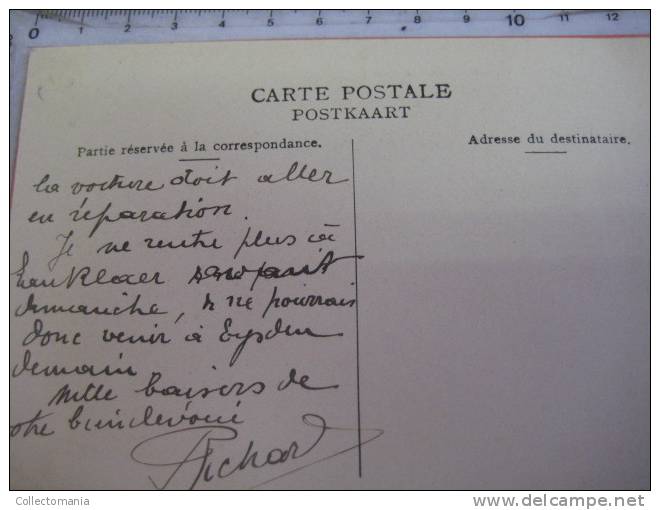 0 1 2 3 4 5 6 7 8 9 10 11 12
CARTE POSTALE
POSTKAART
Partie réservée à la correspondance.
Adresse du destinataire.
la voiture doit aller
en réparation.
Je ne rentre plus
avant
dimanche, & ne pourrais
donc venir à Eysden
demain
Mille baisers de
otre bien dévoué
Richard
Collectomania
delcampe.net